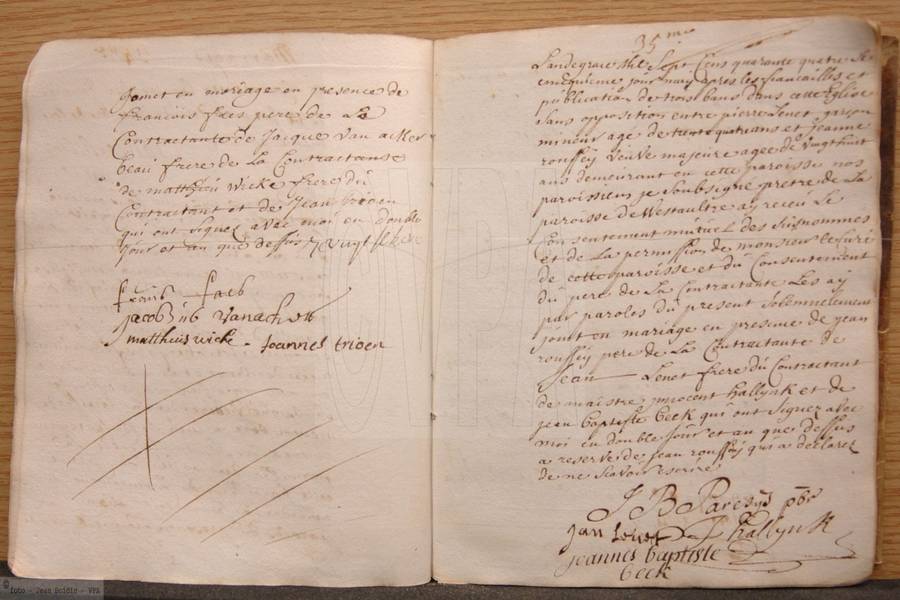 joinet en mariage en presence de
francois faes pere de La
Contractante de Jacque Van acker
beau frere de La Contractante
de matthieu wicke frere du
Contractant et de Jean trioen
qui ont signez avec moi en double
jour et an que dessus
jacobus Vanacker
mattheus wicke - Joannes trioen
35me
Landegrace Mil Sept Cens quarante quatre Le
cincquieme jour may apres les fiancailles et
publication de trois bans dans cette Eglise
sans opposition entre pierre Lenet garson
mineur age de ans et Jeanne
rouffey veuve majeure agee de vingthuit
ans demeurant en cette paroisse nos
paroissiens je soubsigne pretre de La
paroisse de Westoultre ay receu Le
Consentement mutuel des susnommés
et de La permission de monsieur le Curé
de cette paroisse et du Consentement
du pere de La Contractante Les ay
par paroles du present solemnelement
joint en mariage en presence de jean
rouffey pere de La Contractante de
Jean Lenet frere du Contractant
de maistre innocent hallynk et de
jean baptiste beck qui ont signez avec
moi en double jour et an que dessus
a reserve de jean rouffey qui a declarez
de ne scavoir escrire
J B pbr
jan Lenet J hallynck
joannes baptiste
beck
© foto - Jean Boidin - VPA
CVPA